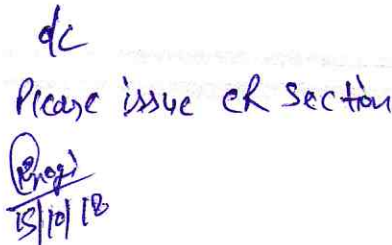 Please issue CR Section
15/10/18